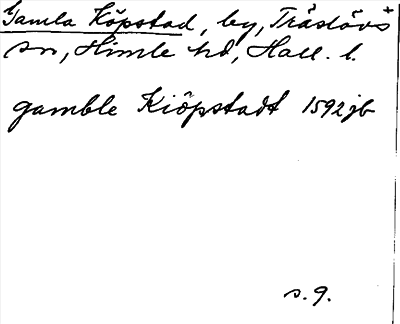 Gamla Köpstad, by, Träslövs
sn, Himle hd, Hall. l.
gamble Kiöpstadt 1592 jb
s. 9.